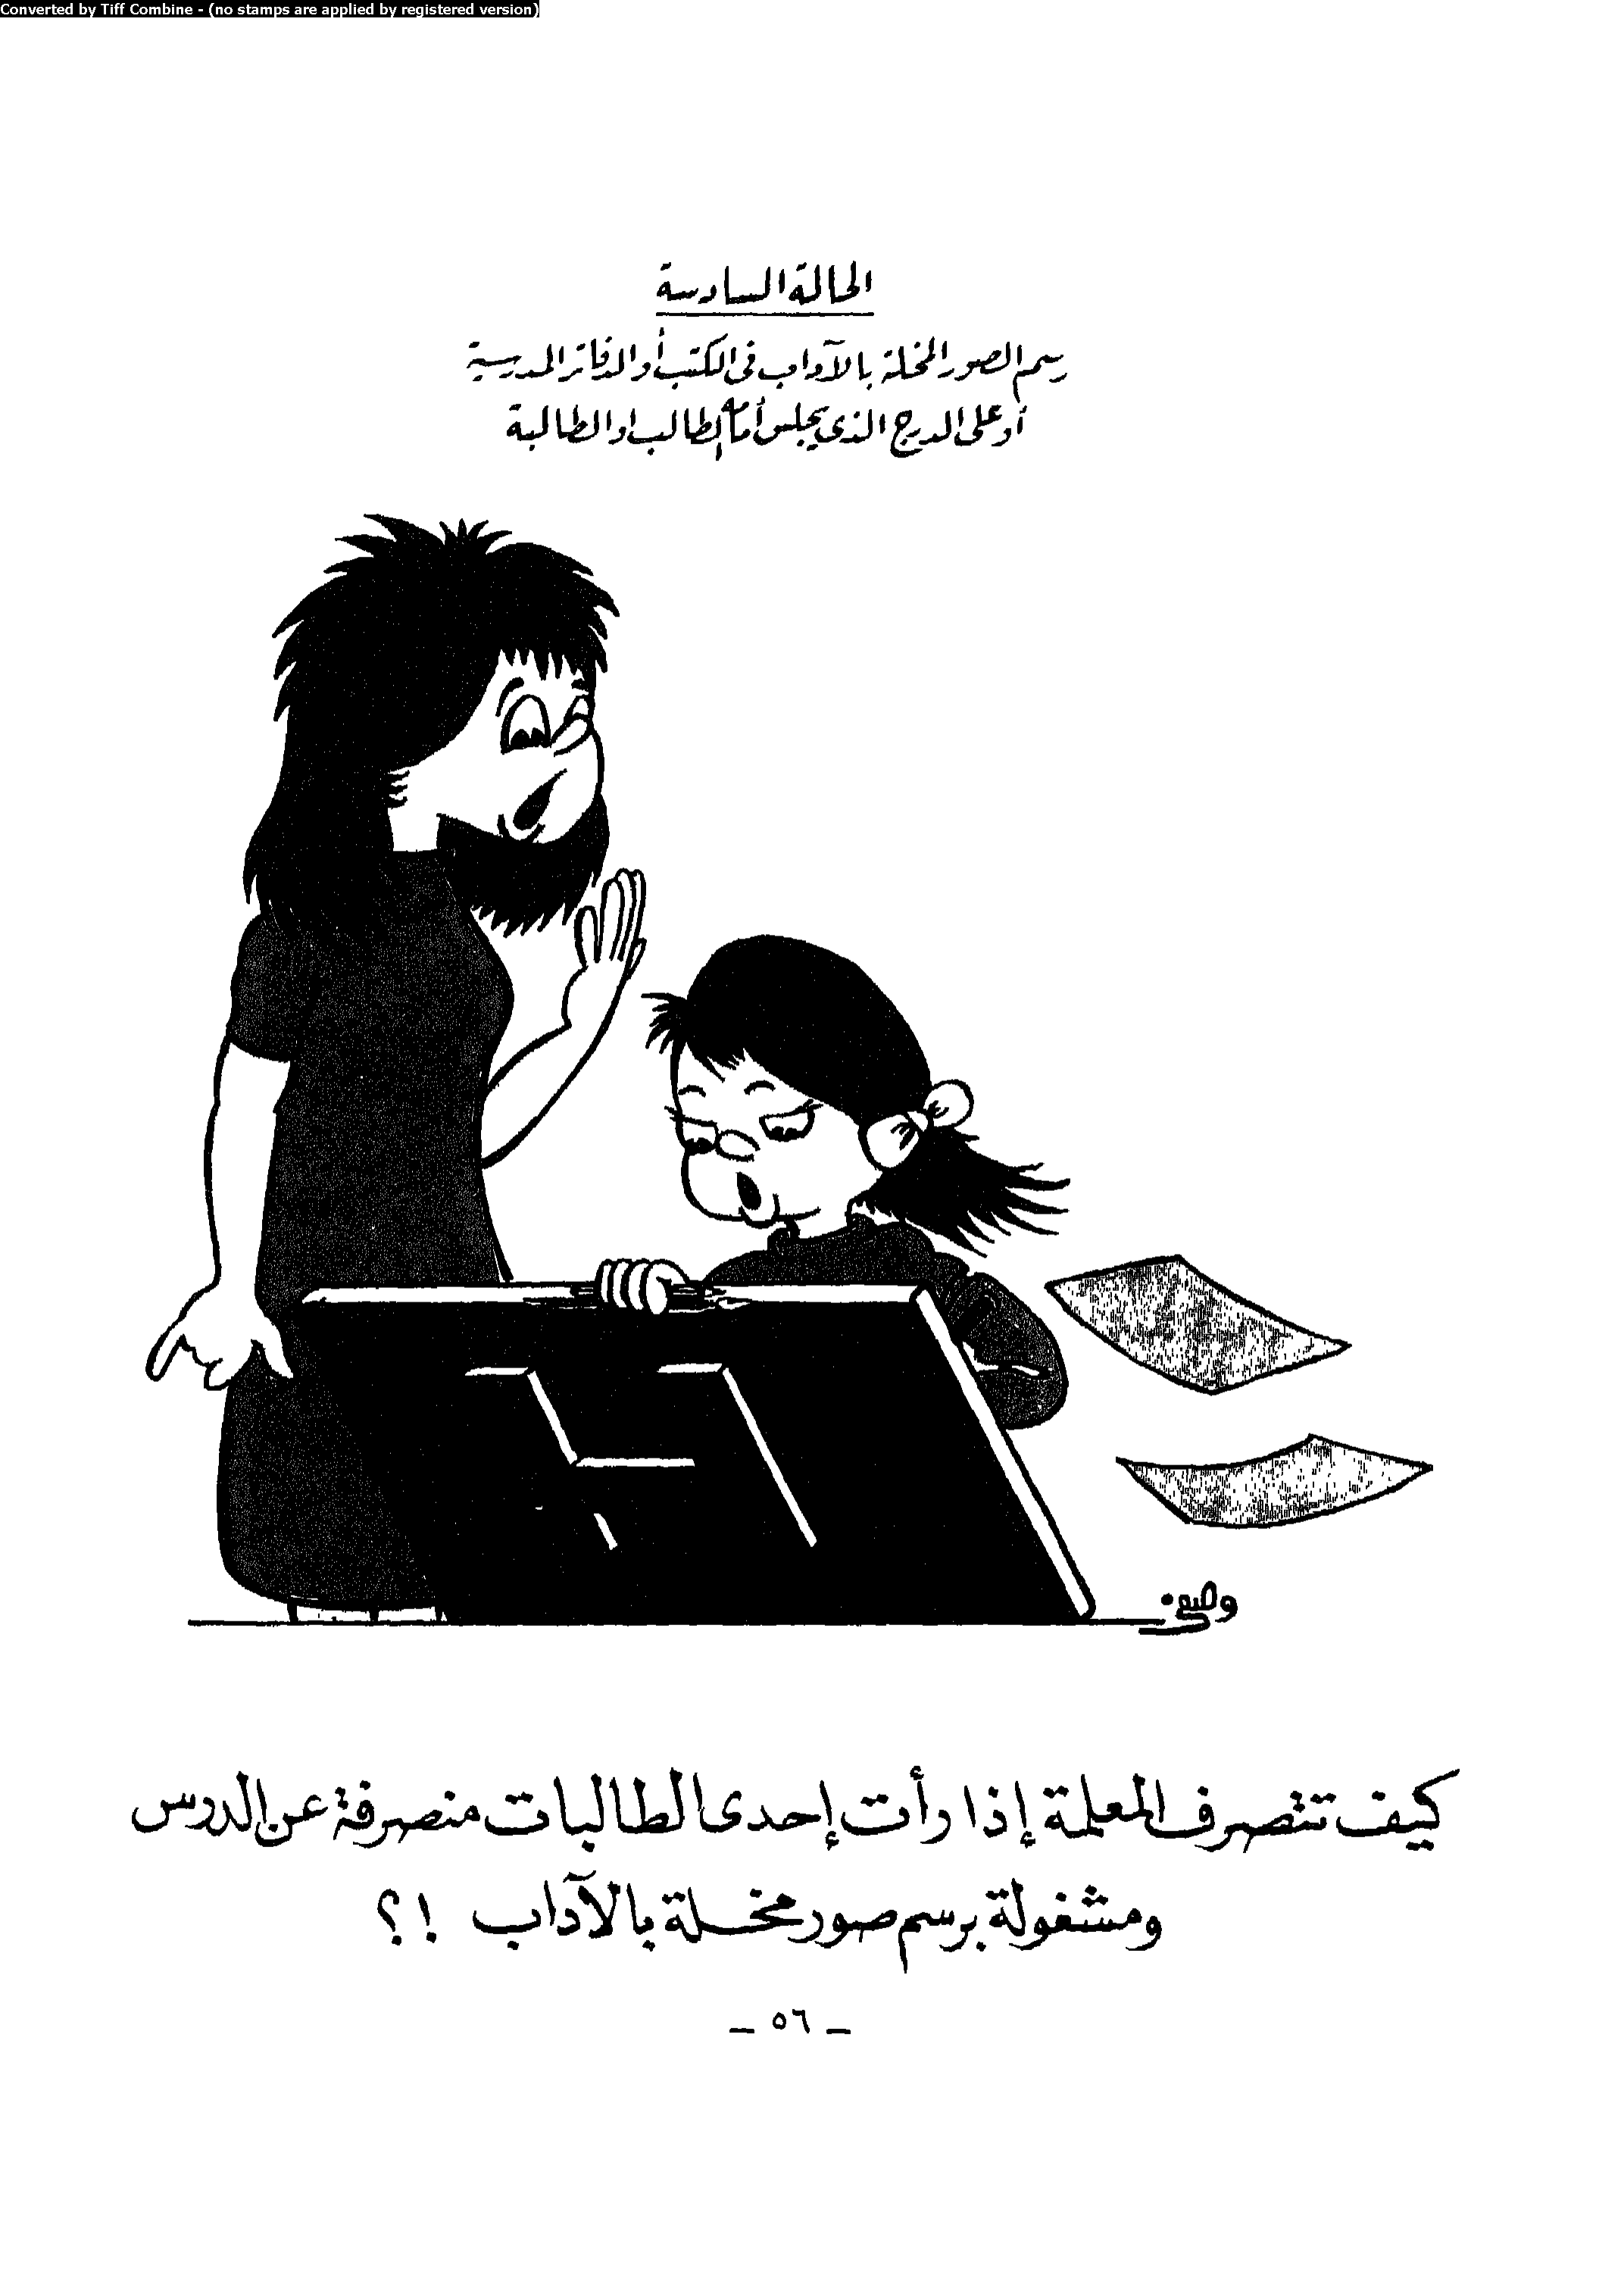 Converted by Tiff Combine - (no stamps are applied by registered version)
الحالة السادسة
رسم الصور المخلة بالآداب في الكتب أو الدفاتر المدرسية
أو على الدرج الذي يجلس أمامه الطالب او الطالبة
وصفي
كيف تتصرف المعلمة إذا رأت إحدى الطالبات منصرفة عن الدرس
ومشغولة برسم صور مخلة بالآداب !؟
- ٥٦ -